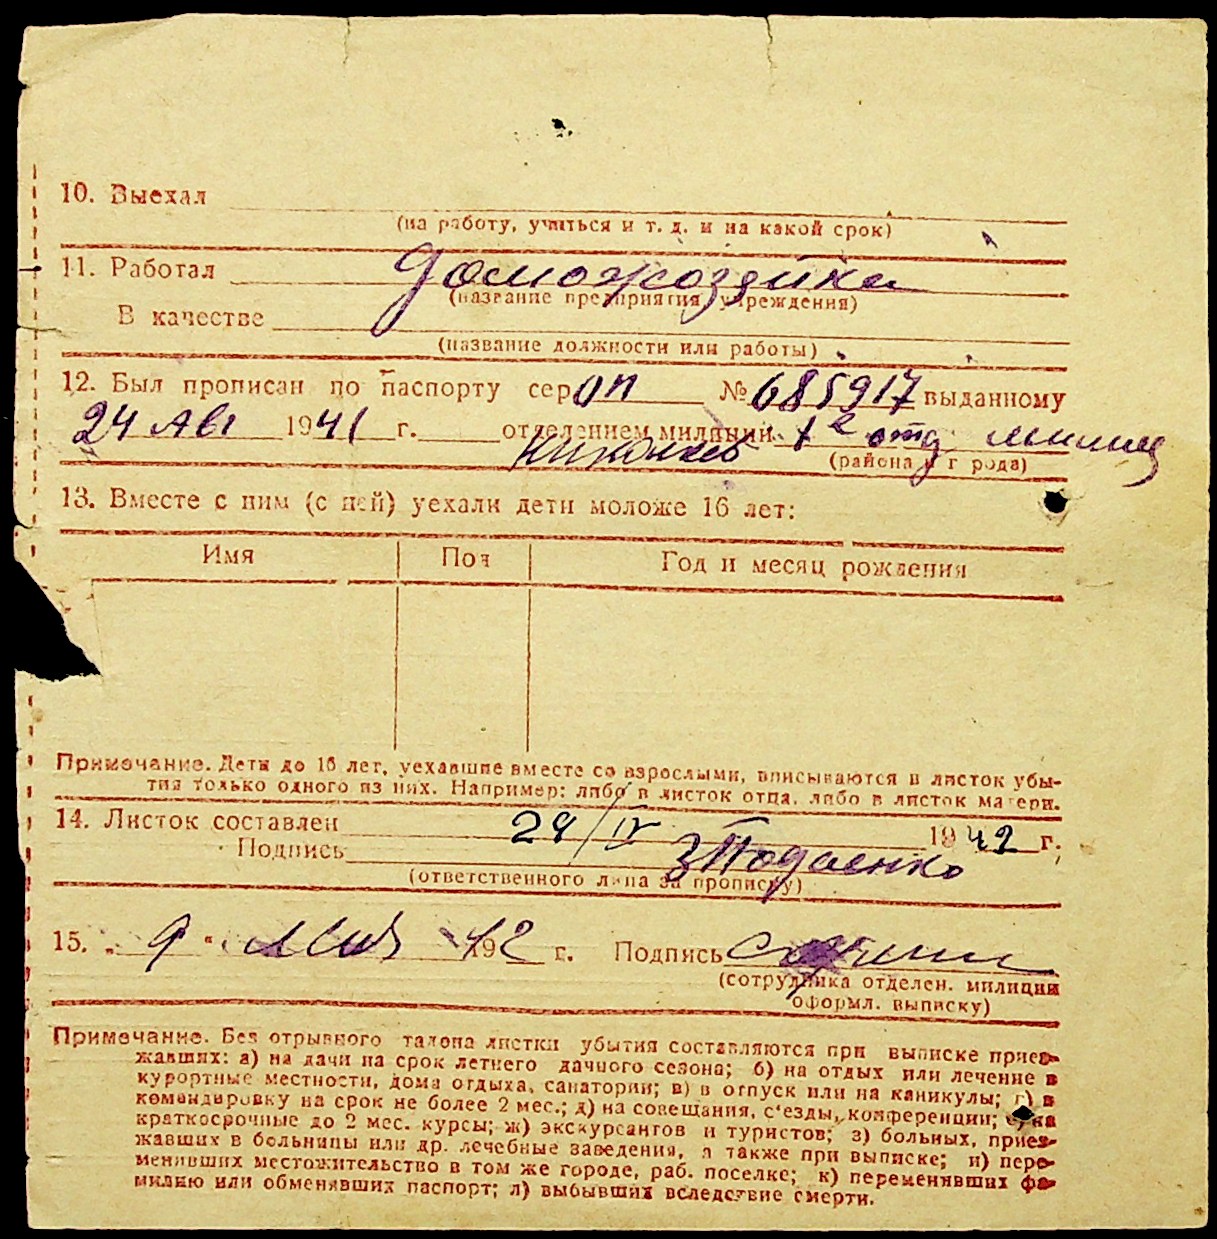 10. Выехал
(на работу, учиться и т. д. и на какой срок)
11. Работал домохозяйка
(название предприятия, учреждения)
В качестве
(название должности или работы)
12. Был прописан по паспорту сер. ОП № 685917 выданному
24 Авг 1941 г. отделением милиции 1е отд милиц
Николаев
(района и города)
13. Вместе с ним (с ней) уехали дети моложе 16 лет:
Имя Пол Год и месяц рождения
Примечание. Дети до 16 лет, уехавшие вместе со взрослыми, вписываются в листок убы-
тия только одного из них. Например: либо в листок отца, либо в листок матери.
14. Листок составлен 29/IV 1942 г.
Подпись
(ответственного лица за прописку)
15. „ 9 “ мая 1942 г. Подпись
(сотрудника отделен. милиции
оформл. выписку)
Примечание. Без отрывного талона листки убытия составляются при выписке приез-
жавших: а) на дачи на срок летнего дачного сезона; б) на отдых или лечение в
курортные местности, дома отдыха, санатории; в) в отпуск или на каникулы; г) в
командировку на срок не более 2 мес.; д) на совещания, с'езды, конференции; е) на
краткосрочные до 2 мес. курсы; ж) экскурсантов и туристов; з) больных, приез-
жавших в больницы или др. лечебные заведения, а также при выписке; и) пере-
менивших местожительство в том же городе, раб. поселке; к) переменивших фа-
милию или обменявших паспорт; л) выбывших вследствие смерти.